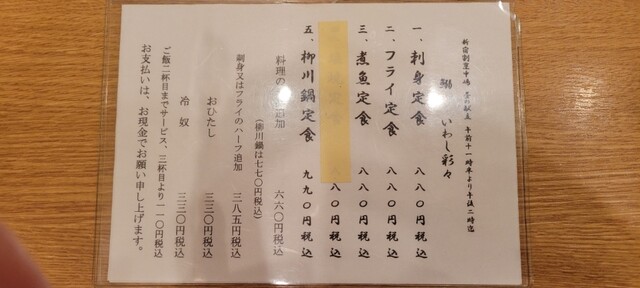 新宿割烹中嶋 昼の献立 午前十一時半より午後二時迄
鰯 いわし彩々
一、刺身定食 八八〇円税込
二、フライ定食 八八〇円税込
三、煮魚定食 八八〇円税込
八八〇円税込
五、柳川鍋定食 九九〇円税込
料理の 追加 六六〇円税込
(柳川鍋は七七〇円税込)
刺身又はフライのハーフ追加 三八五円税込
おひたし 三三〇円税込
冷奴 三三〇円税込
ご飯二杯目までサービス、三杯目より一一〇円税込
お支払いは、お現金でお願い申し上げます。